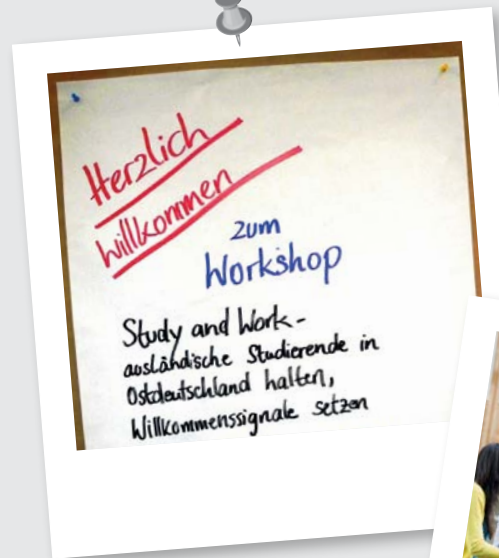 Herzlich
Willkommen
zum
Workshop
Study and Work-
ausländische Studierende in
Ostdeutschland halten,
Willkommenssignale setzen